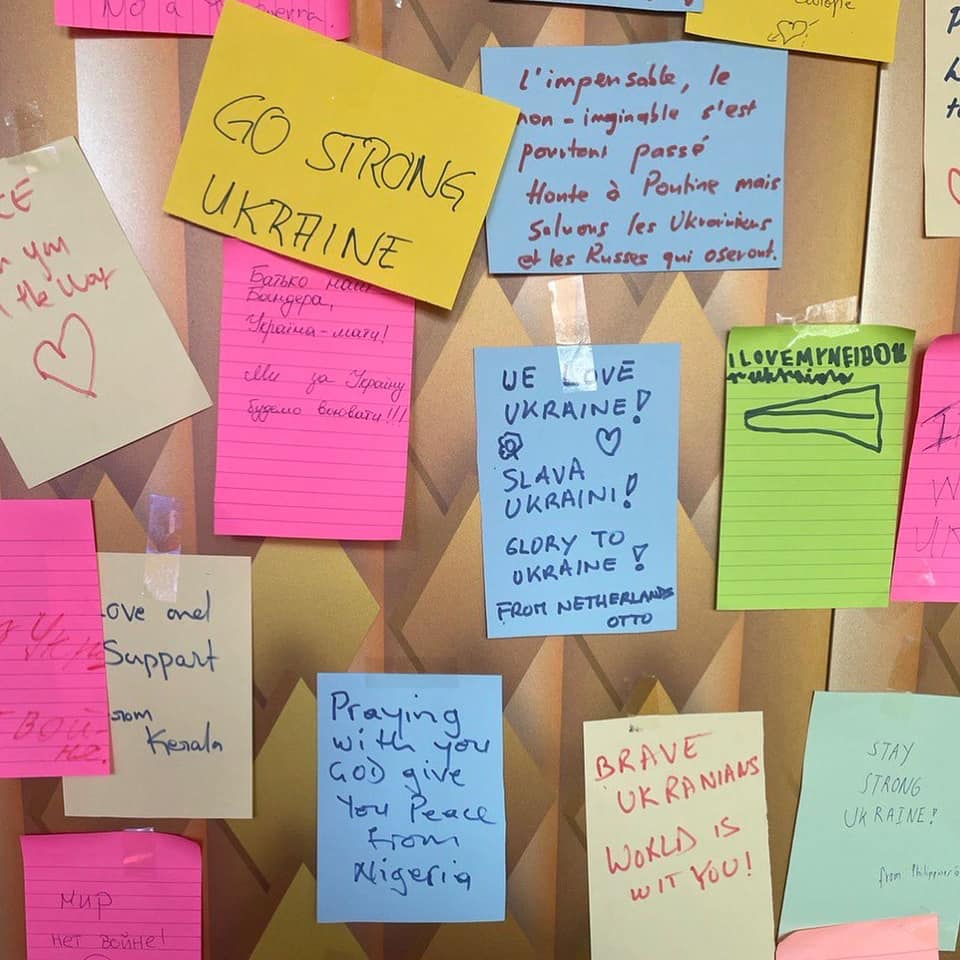 No a
GO STRONG
UKRAINE
L'impensable, le
non-imginable s'est
pourtant passé
Honte à Poutine mais
saluons les Ukrainiens
et les Russes qui oseront.
the War
Батько наш
Бандера,
Україна-мати!
Ми за Україну
будемо воювати!!!
WE LOVE
UKRAINE!
SLAVA
UKRAINI!
GLORY TO
UKRAINE!
FROM NETHERLANDS
OTTO
I LOVE MY NEIBOR
ove and
Support
from
Kerala
Praying
with you
GOD give
You Peace
From
Nigeria
BRAVE
UKRANIANS
WORLD IS
WIT YOU!
STAY
STRONG
UKRAINE!
from Philippines
мир
нет войне!